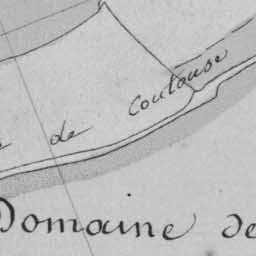 de Coulouse
Domaine de